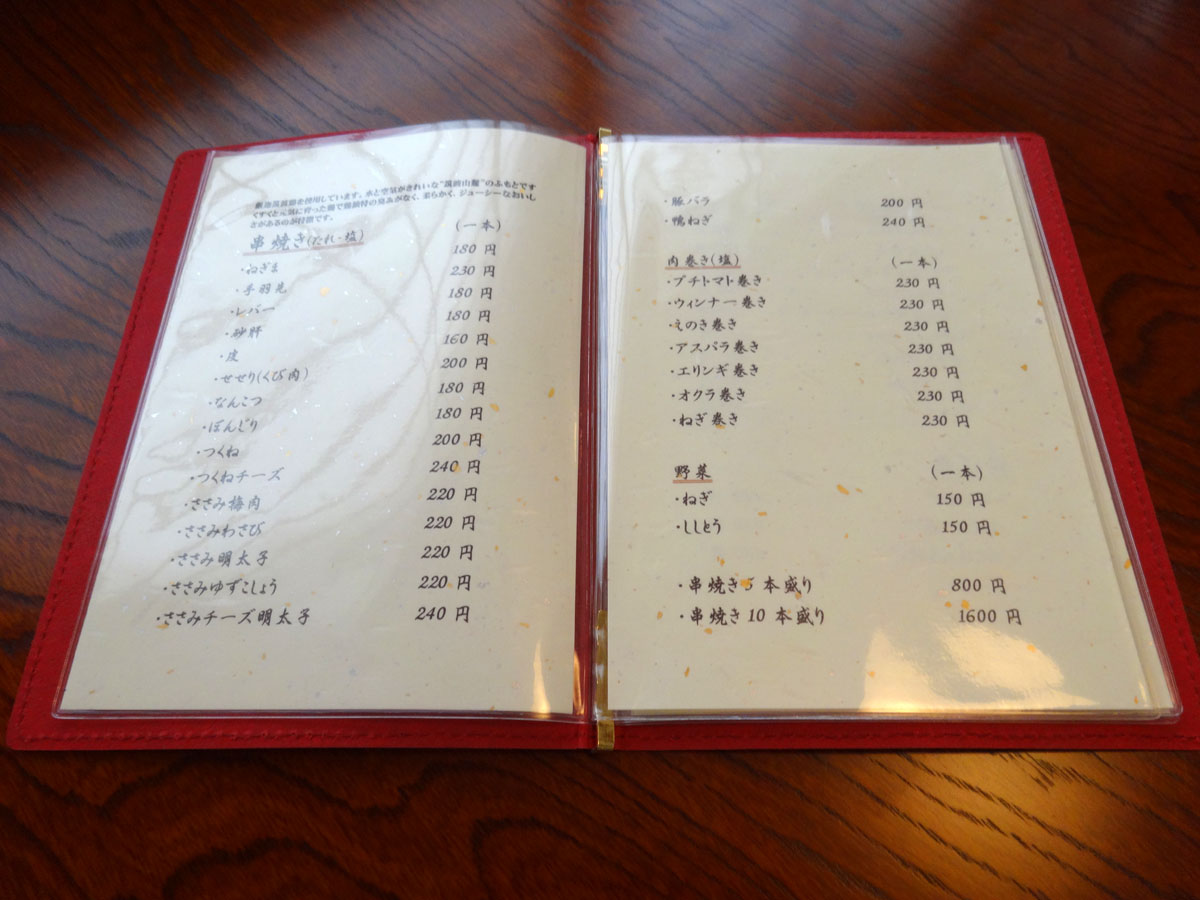 を使用しています。水と空気がきれいな"筑波山麓"のふもとです
くすくと元気に育った鶏で鶏独特の臭みがなく、柔らかく、ジューシーなおいし
さがあるのが特徴です。
串焼き(たれ・塩) (一本)
・ねぎま 180 円
・手羽先 230 円
・レバー 180 円
・砂肝 180 円
・皮 160 円
・せせり(くび肉) 200 円
・なんこつ 180 円
・ぼんじり 180 円
・つくね 200 円
・つくねチーズ 240 円
・ささみ梅肉 220 円
・ささみわさび 220 円
・ささみ明太子 220 円
・ささみゆずこしょう 220 円
・ささみチーズ明太子 240 円
・豚バラ 200 円
・鴨ねぎ 240 円
肉巻き(塩) (一本)
・プチトマト巻き 230 円
・ウィンナー巻き 230 円
・えのき巻き 230 円
・アスパラ巻き 230 円
・エリンギ巻き 230 円
・オクラ巻き 230 円
・ねぎ巻き 230 円
野菜 (一本)
・ねぎ 150 円
・ししとう 150 円
・串焼き 5 本盛り 800 円
・串焼き 10 本盛り 1600 円